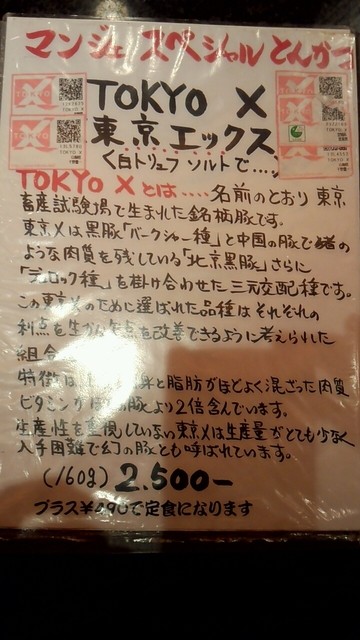 マンジェ スペシャルとんかつ
TOKYO X
東京エックス
〈白トリュフソルトで....〉
TOKYO Xとは.... 名前のとおり 東京
畜産試験場で生まれた銘柄豚です。
東京Xは黒豚「バークシャー種」と中国の豚で
のような肉質を残している「北京黒豚」さらに
「デュロック種」を掛け合わせた三元交配種です。
この東京Xのために選ばれた品種はそれぞれの
利点を生かし欠点を改善できるように考えられた
組合
特徴は と脂肪がほどよく混ざった肉質
ビタミンが 豚より2倍含んでいます。
生産性を重視していない東京Xは生産量がとても少なく
入手困難で幻の豚とも呼ばれています。
(160g) 2.500-
プラス¥490で定食になります